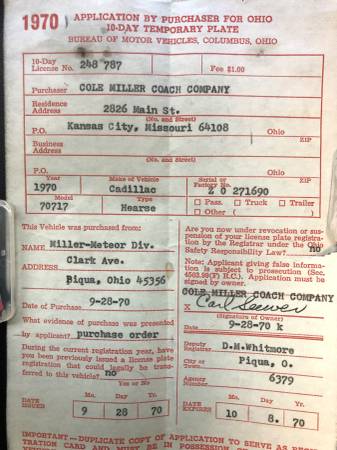 1970 APPLICATION BY PURCHASER FOR OHIO
10-DAY TEMPORARY PLATE
BUREAU OF MOTOR VEHICLES, COLUMBUS, OHIO
10-Day
License No. 248 787 Fee $1.00
Purchaser COLE MILLER COACH COMPANY
Residence
Address 2826 Main St.
(No. and Street)
P.O. Kansas City, Missouri 64108 Ohio
ZIP
Business
Address
(No. and Street)
P.O. Ohio
ZIP
Year Make of Vehicle Serial or
Factory No.
1970 Cadillac Z 0 271690
Model Type
70717 Hearse
□ Pass. □ Truck □ Trailer
□ Other (
This Vehicle was purchased from:
NAME Miller-Meteor Div.
ADDRESS Clark Ave.
Piqua, Ohio 45356
Date of Purchase 9-28-70
What evidence of purchase was presented
by applicant? purchase order
During the current registration year, have
you been previously issued a license plate
registration that could legally be trans-
ferred to this vehicle? no
Yes or No
Mo. Day Yr.
DATE
ISSUED 9 28 70
Are you now under revocation or sus-
pension of your license plate registra-
tion by the Registrar under the Ohio
Safety Responsibility Law? no
Note: Applicant giving false informa-
tion is subject to prosecution (Sec.
4503.99(F) R.C.). Application must be
signed by owner.
COLE MILLER COACH COMPANY
X Carl
(Signature of Owner)
Date 9-28-70 k
Deputy
Registrar D.M.Whitmore
City or
Town Piqua, O.
Agency
Number 6379
Mo. Day Yr.
DATE
EXPIRES 10 8. 70
IMPORTANT—DUPLICATE COPY OF APPLICATION TO SERVE AS REGIS-
TRATION CARD AND MUST BE IN POSSESSION